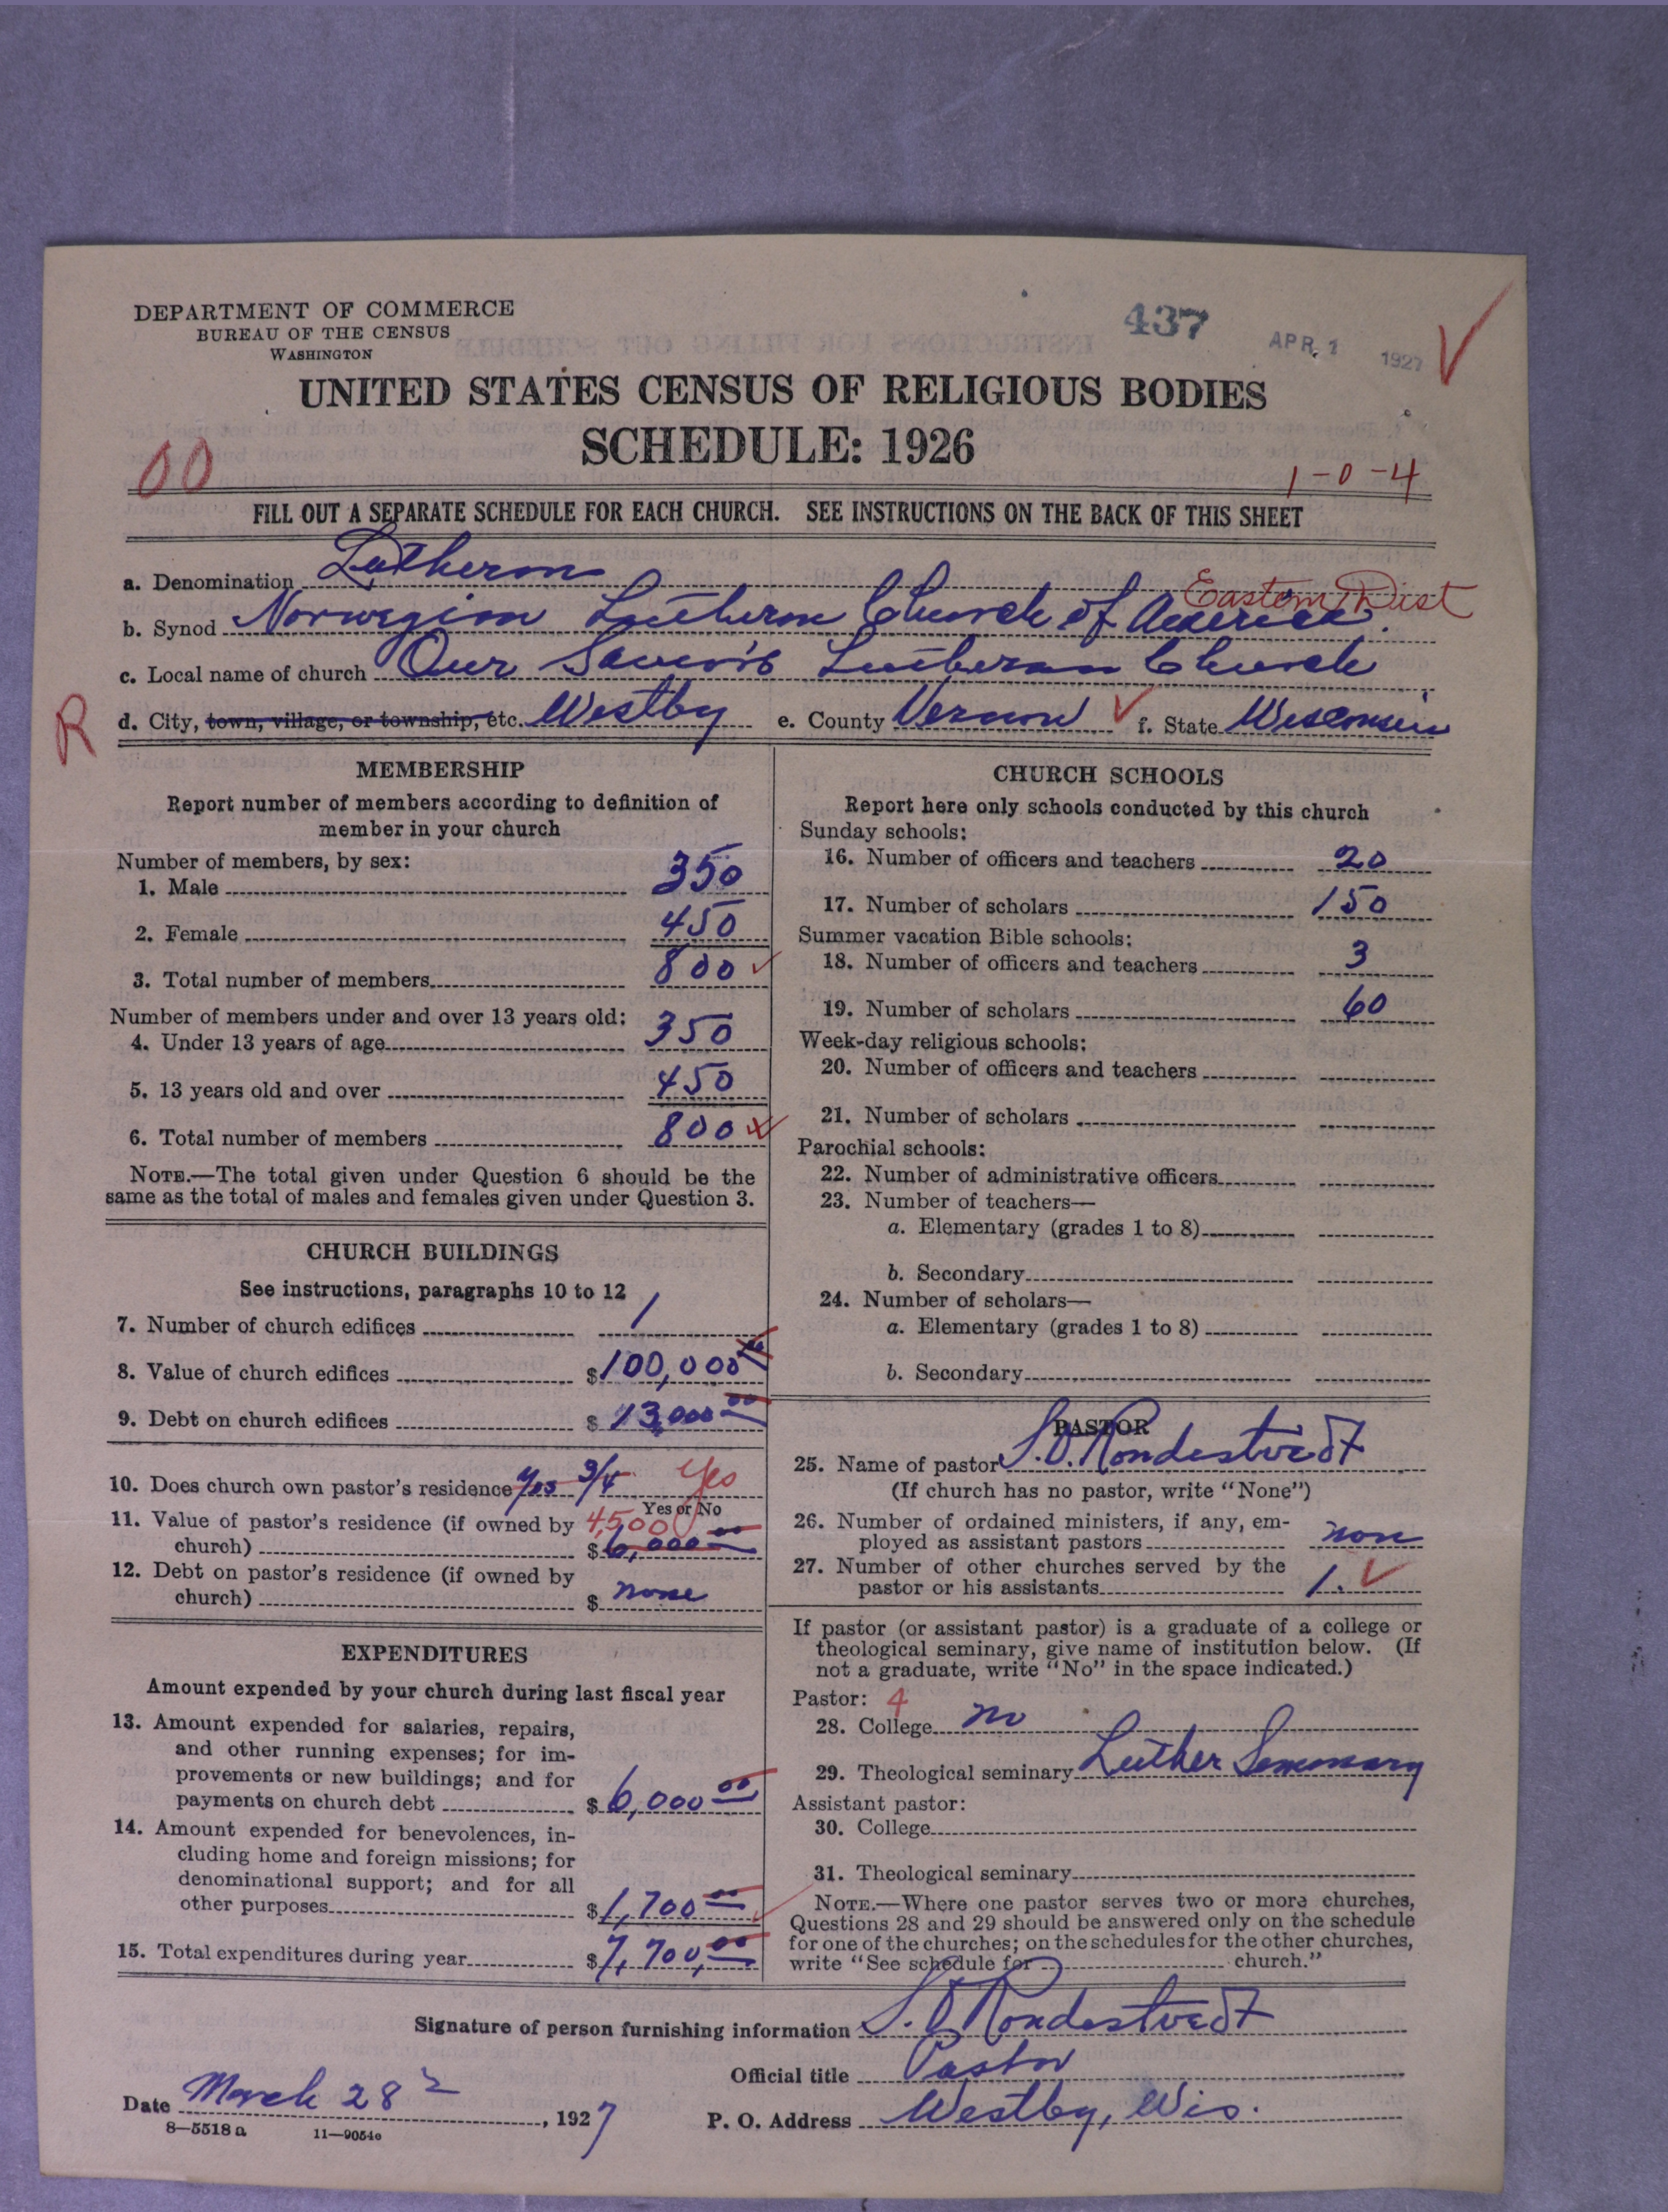 DEPARTMENT OF COMMERCE
BUREAU OF THE CENSUS
WASHINGTON
437
APR. 1 1927
UNITED STATES CENSUS OF RELIGIOUS BODIES
SCHEDULE: 1926
00
1-0-4
FILL OUT A SEPARATE SCHEDULE FOR EACH CHURCH. SEE INSTRUCTIONS ON THE BACK OF THIS SHEET
a. Denomination Lutheran
Eastern Dist
b. Synod Norwegian Lutheran Church of America.
c. Local name of church Our Savior's Lutheran Church
R
d. City, town, village, or township, etc. Westby e. County Vernon f. State Wisconsin
MEMBERSHIP
Report number of members according to definition of
member in your church
Number of members, by sex:
1. Male 350
2. Female 450
3. Total number of members 800
Number of members under and over 13 years old:
4. Under 13 years of age 350
5. 13 years old and over 450
6. Total number of members 800
NOTE.—The total given under Question 6 should be the
same as the total of males and females given under Question 3.
CHURCH BUILDINGS
See instructions, paragraphs 10 to 12
7. Number of church edifices 1
8. Value of church edifices $100,000 00
9. Debt on church edifices $13,000 00
10. Does church own pastor's residence Yes 3/4 Yes
Yes or No
11. Value of pastor's residence (if owned by 4,500
church) $6,000 00
12. Debt on pastor's residence (if owned by
church) $ none
EXPENDITURES
Amount expended by your church during last fiscal year
13. Amount expended for salaries, repairs,
and other running expenses; for im-
provements or new buildings; and for
payments on church debt $6,000 00
14. Amount expended for benevolences, in-
cluding home and foreign missions; for
denominational support; and for all
other purposes $1,700 00
15. Total expenditures during year $7,700,00
CHURCH SCHOOLS
Report here only schools conducted by this church
Sunday schools:
16. Number of officers and teachers 20
17. Number of scholars 150
Summer vacation Bible schools:
18. Number of officers and teachers 3
19. Number of scholars 60
Week-day religious schools:
20. Number of officers and teachers
21. Number of scholars
Parochial schools:
22. Number of administrative officers
23. Number of teachers—
a. Elementary (grades 1 to 8)
b. Secondary
24. Number of scholars—
a. Elementary (grades 1 to 8)
b. Secondary
PASTOR
25. Name of pastor S. O. Rondestvedt
(If church has no pastor, write "None")
26. Number of ordained ministers, if any, em-
ployed as assistant pastors none
27. Number of other churches served by the
pastor or his assistants 1.
If pastor (or assistant pastor) is a graduate of a college or
theological seminary, give name of institution below. (If
not a graduate, write "No" in the space indicated.)
Pastor: 4
28. College no
29. Theological seminary Luther Seminary
Assistant pastor:
30. College
31. Theological seminary
NOTE.—Where one pastor serves two or more churches,
Questions 28 and 29 should be answered only on the schedule
for one of the churches; on the schedules for the other churches,
write "See schedule for church."
Signature of person furnishing information S. O. Rondestvedt
Official title Pastor
Date March 28, 1927
P. O. Address Westby, Wis.
8—5518 a 11—9054c